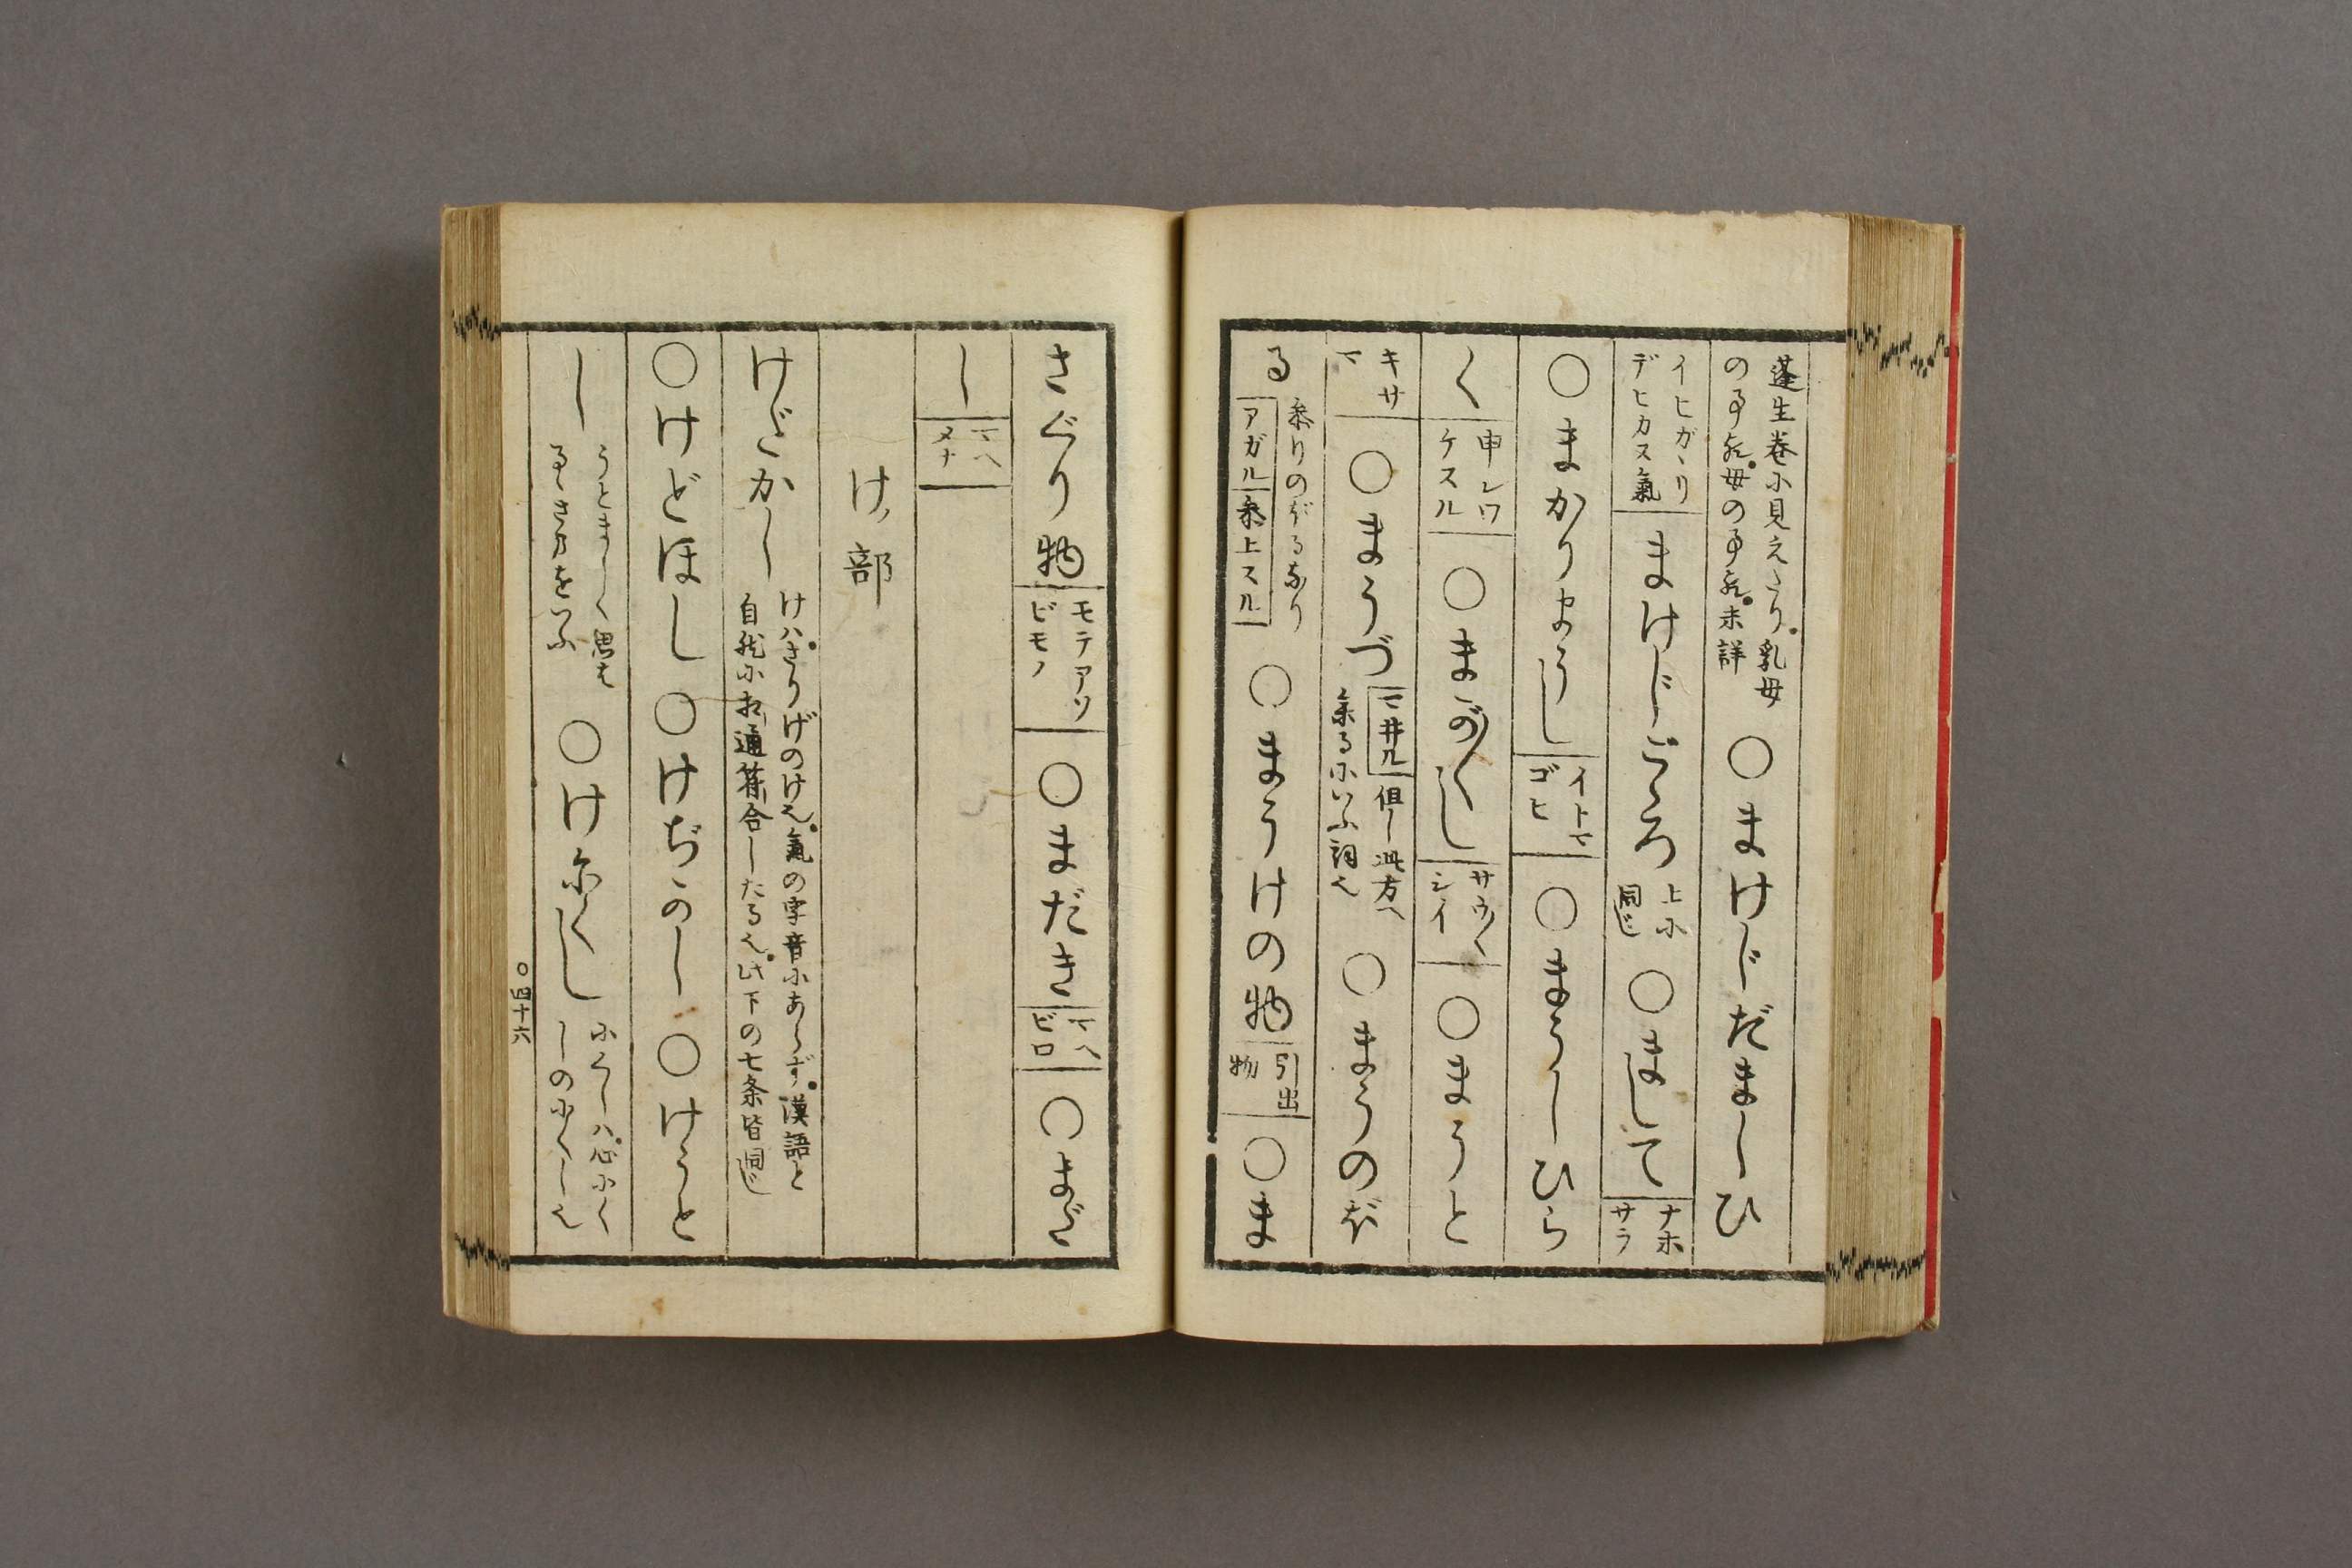 蓬生巻に見えたり。乳母
の事也。母の事也。未詳
○まけじだましひ
イヒガヽリ
デヒカヌ氣
まけじごゝろ
上に
同じ
○まして
ナホ
サラ
○まかりまうし
イトマ
ゴヒ
○まうしひら
く
申シワ
ケスル
○まがまがし
サウ〴〵
シイ
○まうと
キサ
マ
○まうづ
マ井ル
但し此方へ
来るにいふ詞也
○まうのぼ
る
参りのぼるなり
アガル
参上スル
○まうけの物
引出
物
○ま
さぐり物
モテアソ
ビモノ
○まだき
マヘ
ビロ
○まど
し
マヘ
ヌナ
け部
けどかし
けハ。さりげのけ也。氣の字音にあらず。漢語と
自然に相通符合したる也。此下の七条皆同じ
○けどほし
○けぢかし
○けうと
し
うとましく思は
るゝさまをいふ
○けにくし
にくしハ。心にく
しのにくし也
○四十六